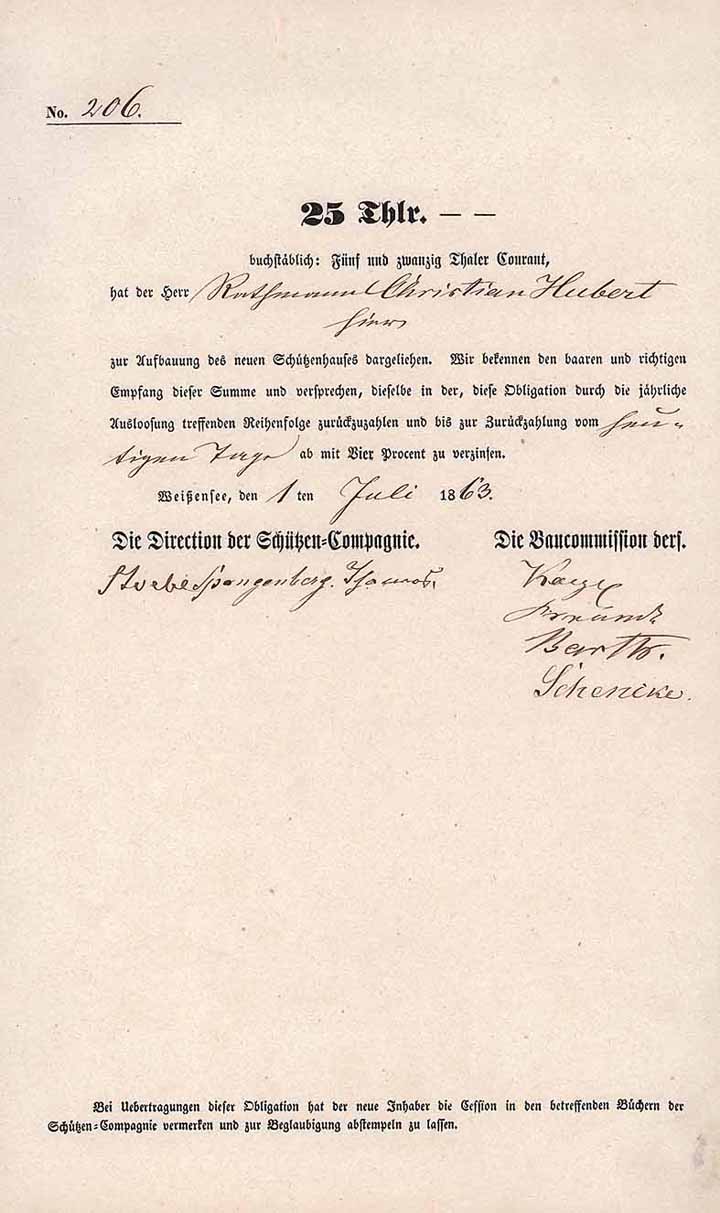 No. 206.
25 Thlr. — —
buchstäblich: Fünf und zwanzig Thaler Courant,
hat der Herr Rathmann Christian Hubert
hier
zur Aufbauung des neuen Schützenhauses dargeliehen. Wir bekennen den baaren und richtigen
Empfang dieser Summe und versprechen, dieselbe in der, diese Obligation durch die jährliche
Ausloosung treffenden Reihenfolge zurückzuzahlen und bis zur Zurückzahlung vom heu-
tigen Tage ab mit Vier Procent zu verzinsen.
Weißensee, den 1 ten Juli 1863.
Die Direction der Schützen-Compagnie. Die Baucommission ders.
Spangenberg.
Freund
Barth.
Schenike.
Bei Uebertragungen dieser Obligation hat der neue Inhaber die Cession in den betreffenden Büchern der
Schützen-Compagnie vermerken und zur Beglaubigung abstempeln zu lassen.